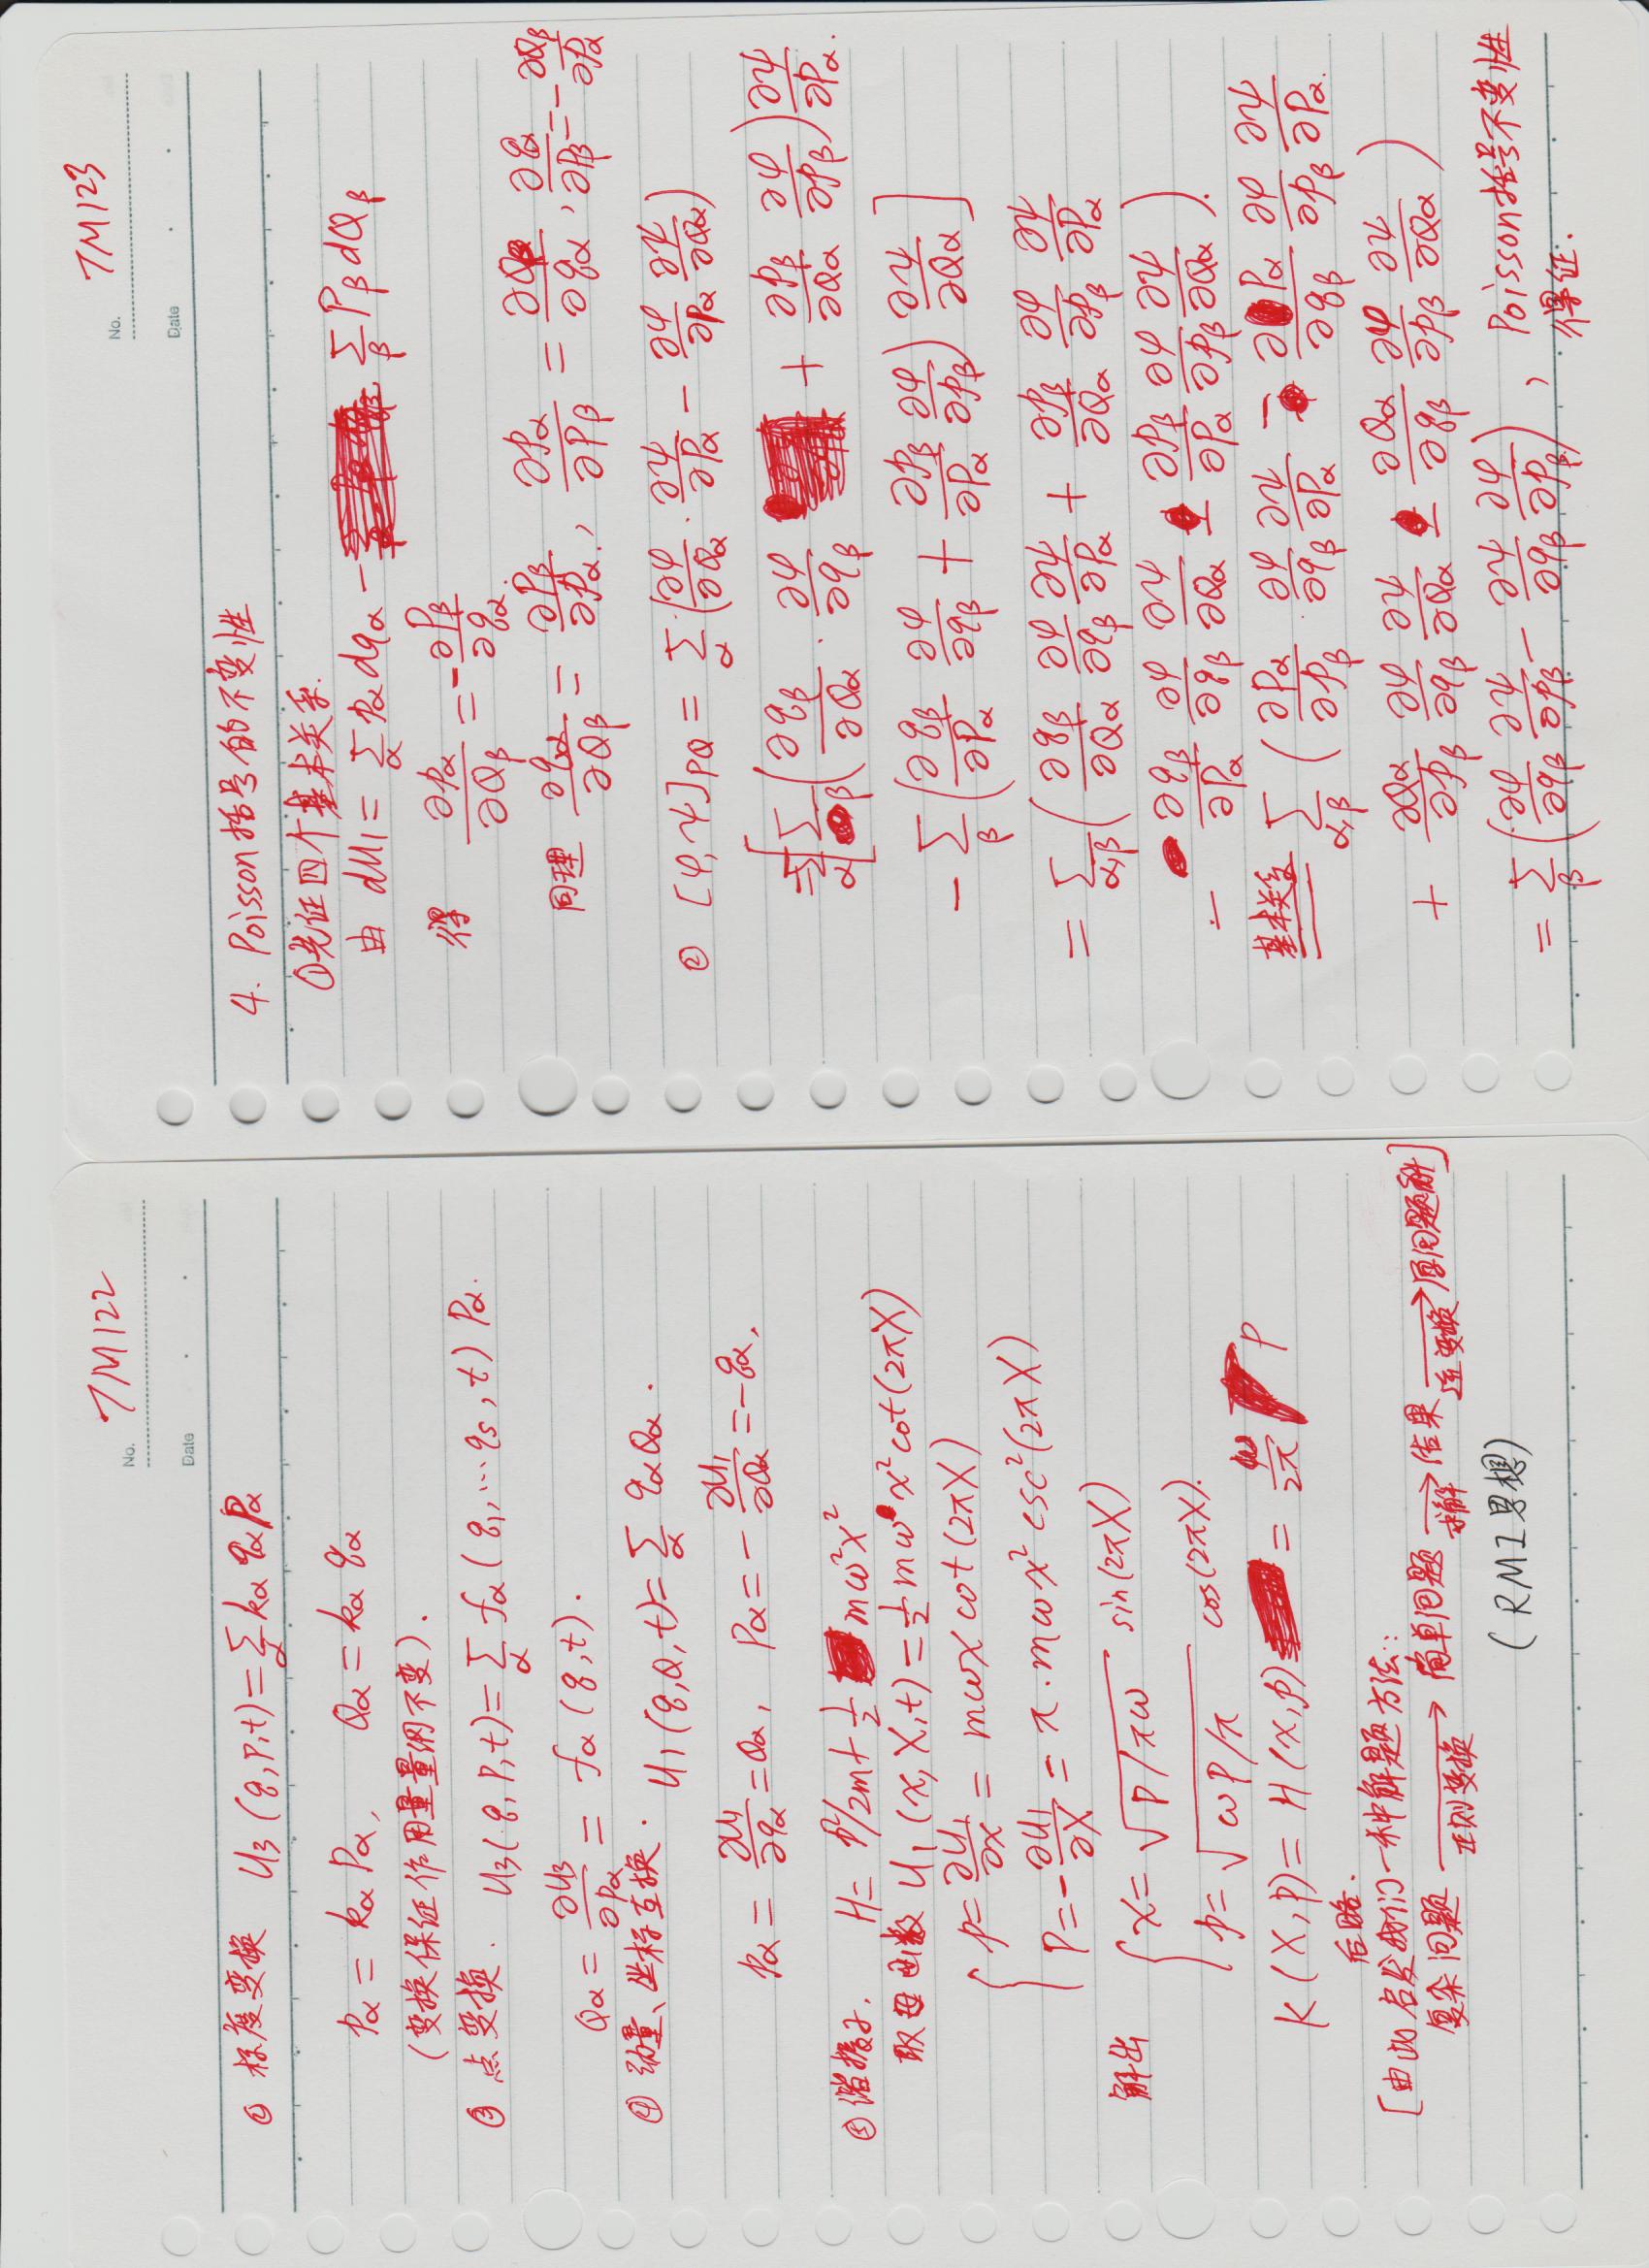 No. TM122
Date
② 标度变换 U₃(q,P,t)=∑_α k_α q_α P_α
p_α = k_α P_α, Q_α = k_α q_α
(变换保证作用量量纲不变).
③ 点变换. U₃(q,P,t)=∑_α f_α(q₁,…q_s,t) P_α.
Q_α = ∂U₃/∂P_α = f_α(q,t).
④ 动量、坐标互换. U₁(q,Q,t)=∑_α q_α Q_α.
p_α = ∂U₁/∂q_α = Q_α, P_α = -∂U₁/∂Q_α = -q_α.
⑤ 谐振子. H= p²/2m + 1/2 mω²x²
取母函数 U₁(x,X,t)=1/2 mω x² cot(2πX)
p=∂U₁/∂x = mωx cot(2πX)
P=-∂U₁/∂X = π·mωx² csc²(2πX)
解出 x=√(P/πω) sin(2πX)
p=√(ωP/π) cos(2πX).
K(X,P)= H(x,p) = ω/2π P
后略.
[由此启发我们一种解题方法:
复杂问题 →正则变换 简单问题 →求解 结果 →逆变换 原问题解]
(RMI思想)
No. TM123
Date
4. Poisson括号的不变性
①先证四个基本关系.
由 dU₁= ∑_α p_α dq_α - ∑_β P_β dQ_β
得 ∂p_α/∂Q_β = -∂P_β/∂q_α.
同理 ∂q_α/∂Q_β = ∂P_β/∂p_α, ∂p_α/∂P_β = ∂Q_β/∂q_α, ∂q_α/∂P_β = -∂Q_β/∂p_α
② [φ,ψ]_PQ = ∑_α (∂φ/∂Q_α · ∂ψ/∂P_α - ∂φ/∂P_α ∂ψ/∂Q_α)
=∑_α[∑_β(∂q_β/∂Q_α · ∂φ/∂q_β + ∂p_β/∂Q_α ∂φ/∂p_β)∂ψ/∂P_α.
- ∑_β(∂q_β/∂P_α ∂φ/∂q_β + ∂p_β/∂P_α ∂φ/∂p_β) ∂ψ/∂Q_α]
= ∑_α,β(∂q_β/∂Q_α ∂φ/∂q_β ∂ψ/∂P_α + ∂p_β/∂Q_α ∂φ/∂p_β ∂ψ/∂P_α
- ∂q_β/∂P_α ∂φ/∂q_β ∂ψ/∂Q_α - ∂p_β/∂P_α ∂φ/∂p_β ∂ψ/∂Q_α).
基本关系 ∑_α,β (∂P_α/∂p_β · ∂φ/∂q_β ∂ψ/∂P_α - ∂P_α/∂q_β ∂φ/∂p_β ∂ψ/∂P_α.
+ ∂Q_α/∂p_β ∂φ/∂q_β ∂ψ/∂Q_α - ∂Q_α/∂q_β ∂φ/∂p_β ∂ψ/∂Q_α)
= ∑_β(∂φ/∂q_β ∂ψ/∂p_β - ∂ψ/∂q_β ∂φ/∂p_β), Poisson括号不变性
得证.